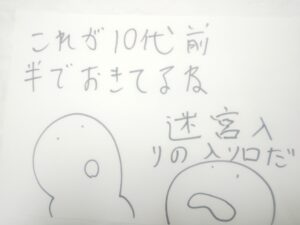 これが10代前
半でおきてるな
迷宮入
りの入り口だ